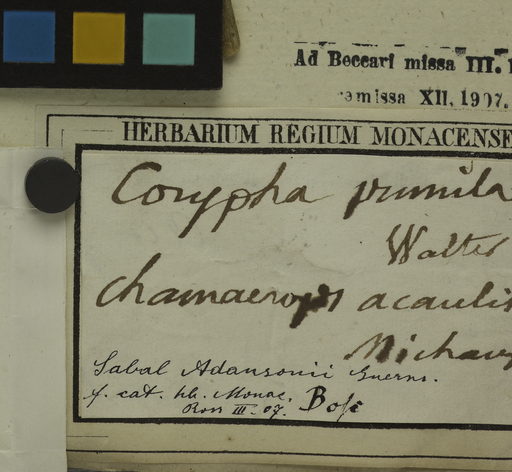 Ad Beccari missa III.
remissa XII, 1907.
HERBARIUM REGIUM MONACENSE
Corypha pumila
Walter
Chamaerops acaulis
Michaux
Sabal Adansonii Guerns.
f. cat. hb. Monac.
Ross III. 07.